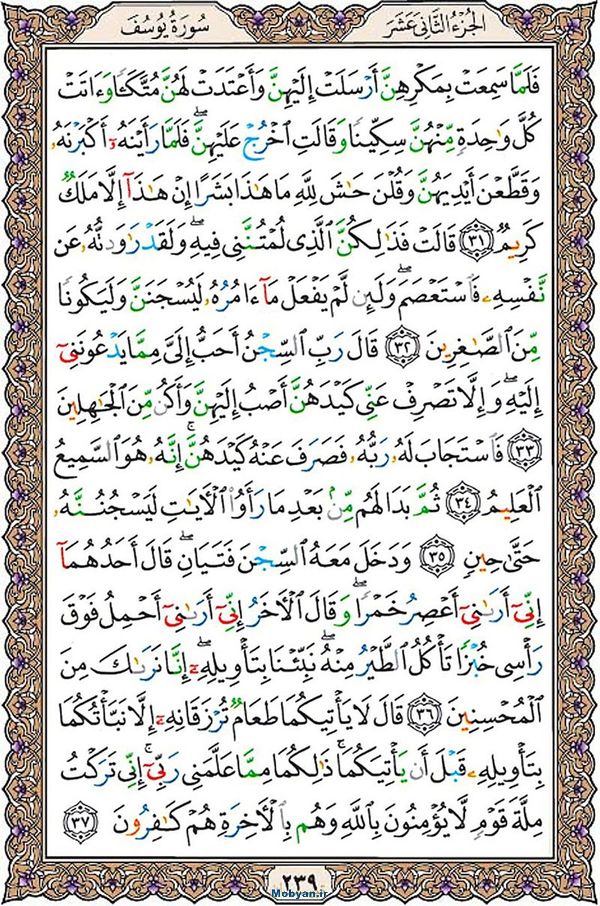 الجُزءُ الثَّانی عَشَر
سُورَةُ یُوسُف
فَلَمَّا سَمِعَتْ بِمَكْرِهِنَّ أَرْسَلَتْ إِلَيْهِنَّ وَأَعْتَدَتْ لَهُنَّ مُتَّكَـًٔا وَءَاتَتْ
كُلَّ وَٰحِدَةٍ مِّنْهُنَّ سِكِّينًا وَقَالَتِ ٱخْرُجْ عَلَيْهِنَّ ۖ فَلَمَّا رَأَيْنَهُۥٓ أَكْبَرْنَهُۥ
وَقَطَّعْنَ أَيْدِيَهُنَّ وَقُلْنَ حَٰشَ لِلَّهِ مَا هَٰذَا بَشَرًا إِنْ هَٰذَآ إِلَّا مَلَكٌ
كَرِيمٌ ٣١ قَالَتْ فَذَٰلِكُنَّ ٱلَّذِى لُمْتُنَّنِى فِيهِ ۖ وَلَقَدْ رَٰوَدتُّهُۥ عَن
نَّفْسِهِۦ فَٱسْتَعْصَمَ ۖ وَلَئِن لَّمْ يَفْعَلْ مَآ ءَامُرُهُۥ لَيُسْجَنَنَّ وَلَيَكُونًا
مِّنَ ٱلصَّٰغِرِينَ ٣٢ قَالَ رَبِّ ٱلسِّجْنُ أَحَبُّ إِلَىَّ مِمَّا يَدْعُونَنِىٓ
إِلَيْهِ ۖ وَإِلَّا تَصْرِفْ عَنِّى كَيْدَهُنَّ أَصْبُ إِلَيْهِنَّ وَأَكُن مِّنَ ٱلْجَٰهِلِينَ
٣٣ فَٱسْتَجَابَ لَهُۥ رَبُّهُۥ فَصَرَفَ عَنْهُ كَيْدَهُنَّ ۚ إِنَّهُۥ هُوَ ٱلسَّمِيعُ
ٱلْعَلِيمُ ٣٤ ثُمَّ بَدَا لَهُم مِّنۢ بَعْدِ مَا رَأَوُا۟ ٱلْءَايَٰتِ لَيَسْجُنُنَّهُۥ
حَتَّىٰ حِينٍ ٣٥ وَدَخَلَ مَعَهُ ٱلسِّجْنَ فَتَيَانِ ۖ قَالَ أَحَدُهُمَآ
إِنِّىٓ أَرَىٰنِىٓ أَعْصِرُ خَمْرًا ۖ وَقَالَ ٱلْءَاخَرُ إِنِّىٓ أَرَىٰنِىٓ أَحْمِلُ فَوْقَ
رَأْسِى خُبْزًا تَأْكُلُ ٱلطَّيْرُ مِنْهُ ۖ نَبِّئْنَا بِتَأْوِيلِهِۦٓ ۖ إِنَّا نَرَىٰكَ مِنَ
ٱلْمُحْسِنِينَ ٣٦ قَالَ لَا يَأْتِيكُمَا طَعَامٌ تُرْزَقَانِهِۦٓ إِلَّا نَبَّأْتُكُمَا
بِتَأْوِيلِهِۦ قَبْلَ أَن يَأْتِيَكُمَا ۚ ذَٰلِكُمَا مِمَّا عَلَّمَنِى رَبِّىٓ ۚ إِنِّى تَرَكْتُ
مِلَّةَ قَوْمٍ لَّا يُؤْمِنُونَ بِٱللَّهِ وَهُم بِٱلْءَاخِرَةِ هُمْ كَٰفِرُونَ ٣٧
٢٣٩
Mobyan.ir